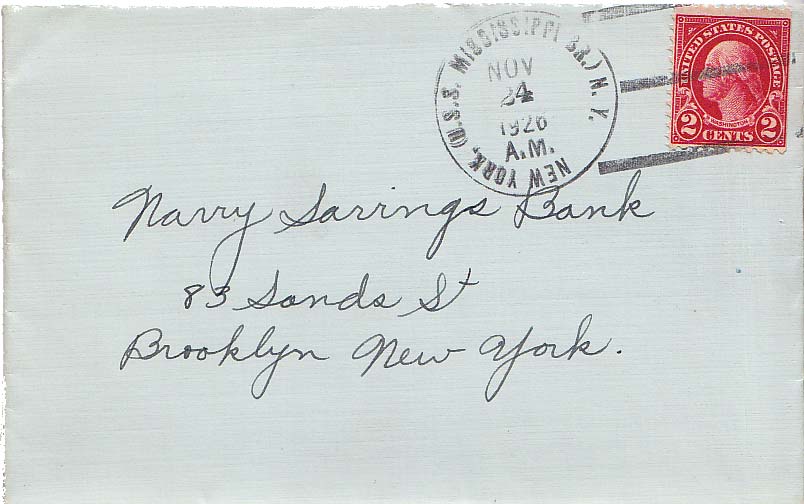 NEW YORK, (U.S.S. MISSISSIPPI BR.) N.Y.
NOV
24
1926
A.M.
UNITED STATES POSTAGE
WASHINGTON
2 CENTS 2
Navy Savings Bank
83 Sands St
Brooklyn New York.